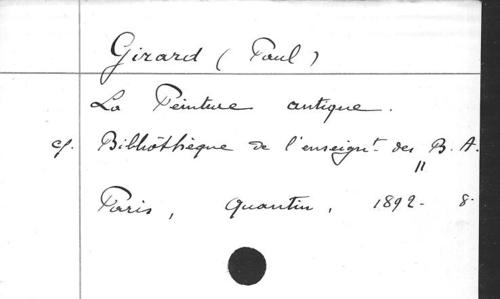 Girard (Paul)
La Peinture antique.
cf. Bibliothèque de l'enseignt des B. A.
"
Paris, Quantin, 1892- 8.